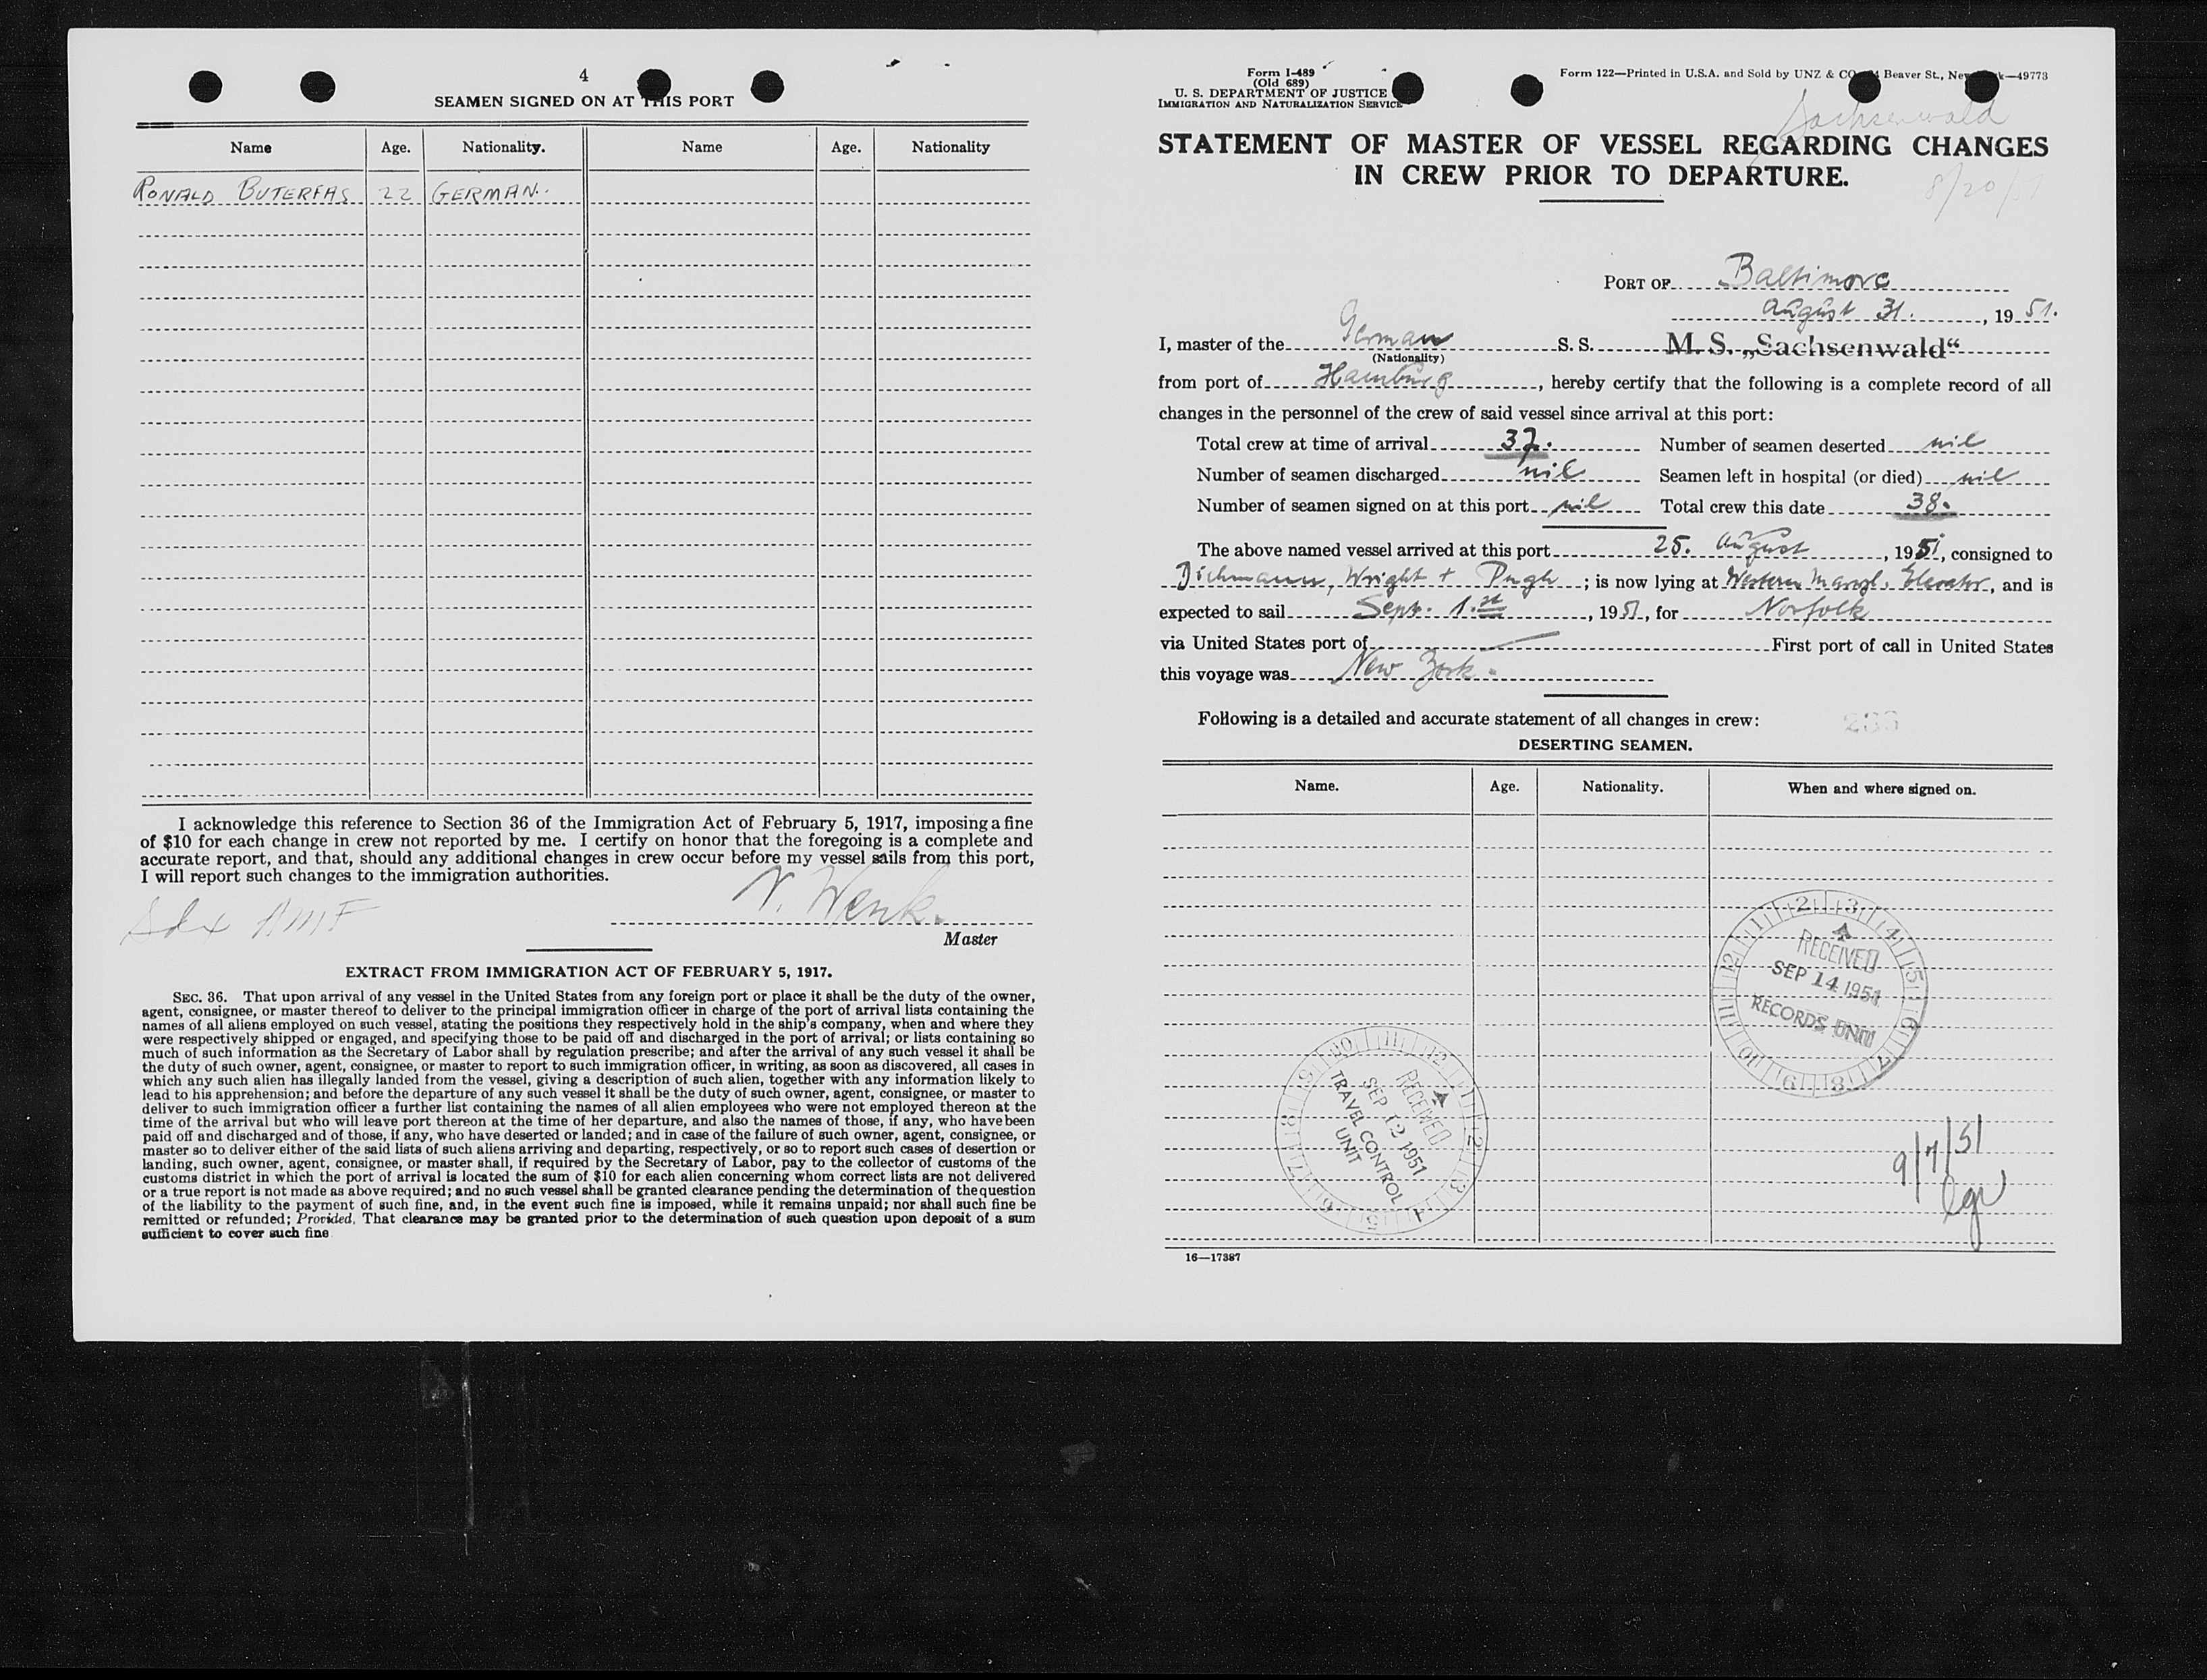 4
SEAMEN SIGNED ON AT THIS PORT
Name Age. Nationality. Name Age. Nationality
RONALD BUTERFAS 22 GERMAN.
I acknowledge this reference to Section 36 of the Immigration Act of February 5, 1917, imposing a fine
of $10 for each change in crew not reported by me. I certify on honor that the foregoing is a complete and
accurate report, and that, should any additional changes in crew occur before my vessel sails from this port,
I will report such changes to the immigration authorities.
Wenk.
Master
EXTRACT FROM IMMIGRATION ACT OF FEBRUARY 5, 1917.
SEC. 36. That upon arrival of any vessel in the United States from any foreign port or place it shall be the duty of the owner,
agent, consignee, or master thereof to deliver to the principal immigration officer in charge of the port of arrival lists containing the
names of all aliens employed on such vessel, stating the positions they respectively hold in the ship's company, when and where they
were respectively shipped or engaged, and specifying those to be paid off and discharged in the port of arrival; or lists containing so
much of such information as the Secretary of Labor shall by regulation prescribe; and after the arrival of any such vessel it shall be
the duty of such owner, agent, consignee, or master to report to such immigration officer, in writing, as soon as discovered, all cases in
which any such alien has illegally landed from the vessel, giving a description of such alien, together with any information likely to
lead to his apprehension; and before the departure of any such vessel it shall be the duty of such owner, agent, consignee, or master to
deliver to such immigration officer a further list containing the names of all alien employees who were not employed thereon at the
time of the arrival but who will leave port thereon at the time of her departure, and also the names of those, if any, who have been
paid off and discharged and of those, if any, who have deserted or landed; and in case of the failure of such owner, agent, consignee, or
master so to deliver either of the said lists of such aliens arriving and departing, respectively, or so to report such cases of desertion or
landing, such owner, agent, consignee, or master shall, if required by the Secretary of Labor, pay to the collector of customs of the
customs district in which the port of arrival is located the sum of $10 for each alien concerning whom correct lists are not delivered
or a true report is not made as above required; and no such vessel shall be granted clearance pending the determination of the question
of the liability to the payment of such fine, and, in the event such fine is imposed, while it remains unpaid; nor shall such fine be
remitted or refunded; Provided, That clearance may be granted prior to the determination of such question upon deposit of a sum
sufficient to cover such fine
Form I-489
(Old 689)
U. S. DEPARTMENT OF JUSTICE
IMMIGRATION AND NATURALIZATION SERVICE
Form 122—Printed in U.S.A. and Sold by UNZ & CO Beaver St., New k—49773
Sachsenwald
STATEMENT OF MASTER OF VESSEL REGARDING CHANGES
IN CREW PRIOR TO DEPARTURE.
8/20/51
PORT OF Baltimore
August 31., 1951.
I, master of the German S. S. M. S. „Sachsenwald“
(Nationality)
from port of Hamburg, hereby certify that the following is a complete record of all
changes in the personnel of the crew of said vessel since arrival at this port:
Total crew at time of arrival 37. Number of seamen deserted nil
Number of seamen discharged nil Seamen left in hospital (or died) nil
Number of seamen signed on at this port nil Total crew this date 38.
The above named vessel arrived at this port 25. August, 1951, consigned to
Dichmann, Wright + Pugh; is now lying at Western Maryl. Elevator, and is
expected to sail Sept. 1.st, 1951, for Norfolk
via United States port of — First port of call in United States
this voyage was New York.
Following is a detailed and accurate statement of all changes in crew:
DESERTING SEAMEN.
Name. Age. Nationality. When and where signed on.
RECEIVED
SEP 14 1951
RECORDS UNIT
RECEIVED
SEP 12 1951
TRAVEL CONTROL
UNIT
9/7/51
16—17387